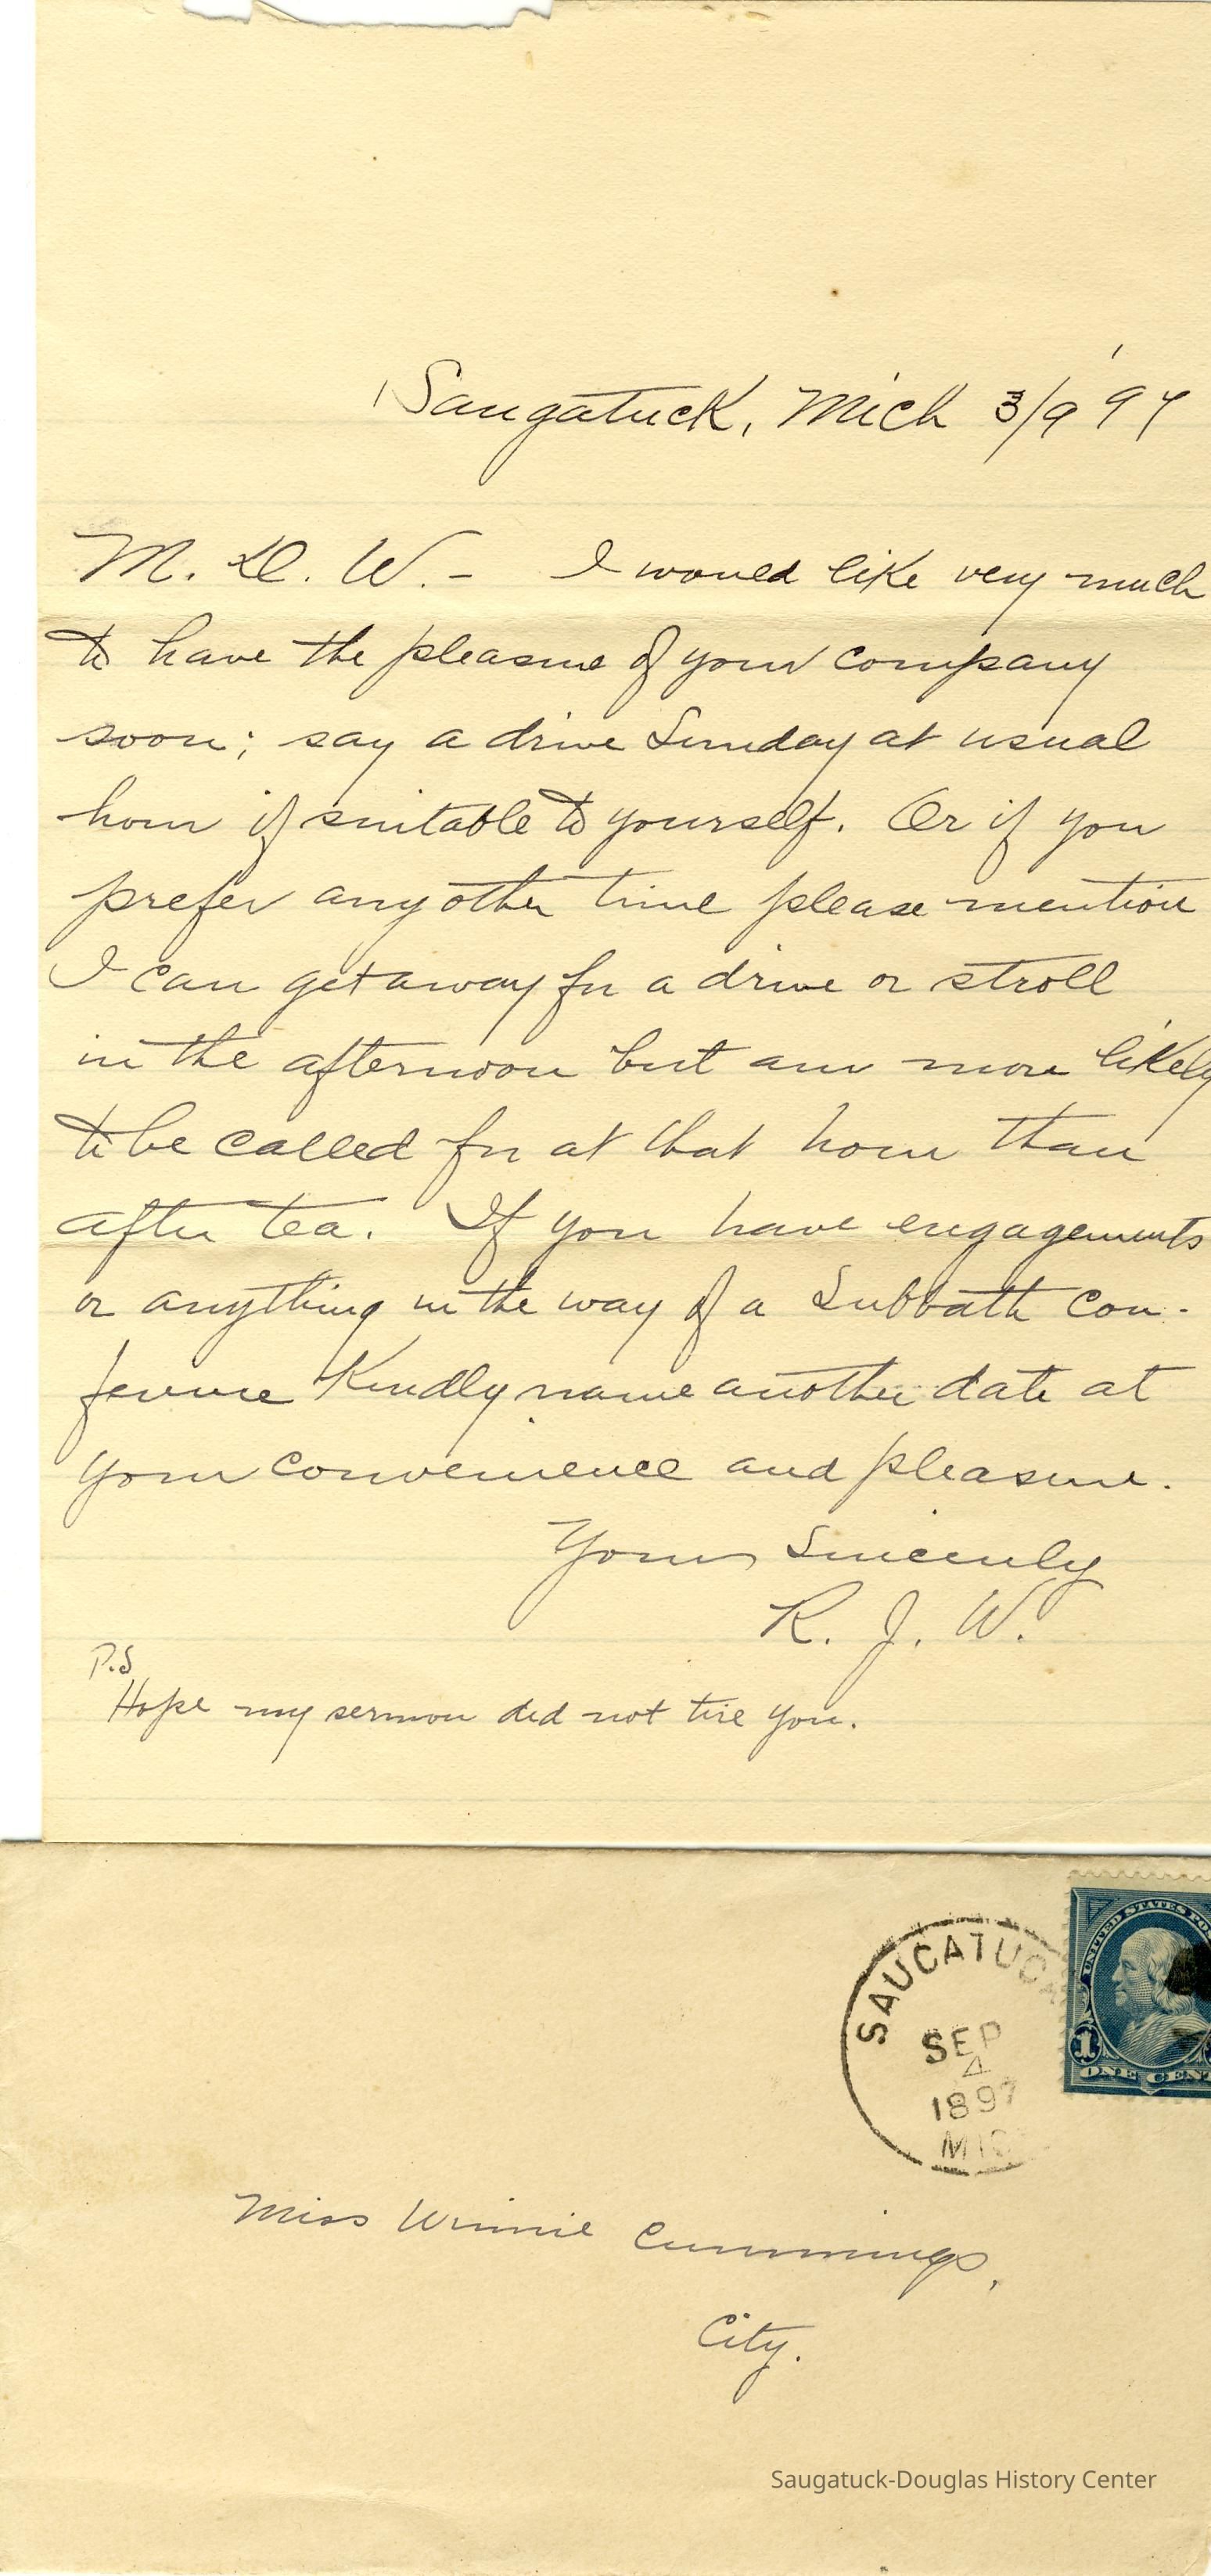 Saugatuck, Mich 3/9 '97
M. D. W. - I would like very much
to have the pleasure of your company
soon; say a drive Sunday at usual
hour if suitable to yourself. Or if you
prefer any other time please mention
I can get away for a drive or stroll
in the afternoon but am more likely
to be called for at that hour than
after tea. If you have engagements
or anything in the way of a Subbath con-
ference Kindly name another date at
your convenience and pleasure.
Yours Sincerely
R. J. W.
P.S
Hope my sermon did not tire you.
SAUGATUCK
SEP
4
1897
MIC
UNITED STATES PO
1
ONE CENT
Miss Winnie Cummings,
City.
Saugatuck-Douglas History Center